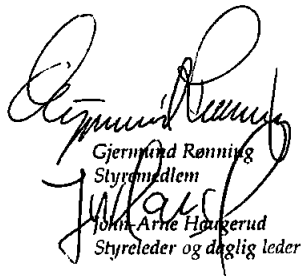 Gjermund Rønning
Styremedlem
John-Arne Haugerud
Styreleder og daglig leder